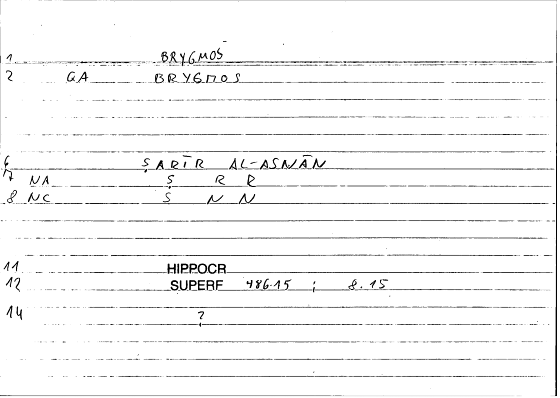 1 BRYGMOS
2 GA BRYGMOS
6 ṢARĪR AL-ASNĀN
7 NA Ṣ R R
8 NC S N N
11 HIPPOCR
12 SUPERF 486.15 ; 8.15
14 ?